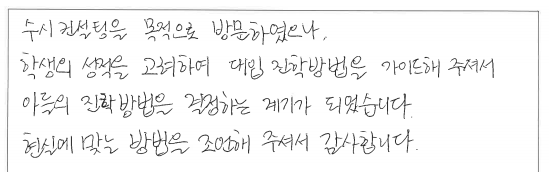 수시컨설팅을 목적으로 방문하였으나,
학생의 성적을 고려하여 대입 진학방법을 가이드해 주셔서
아들의 진학방법을 결정하는 계기가 되었습니다.
현실에 맞는 방법을 조언해 주셔서 감사합니다.